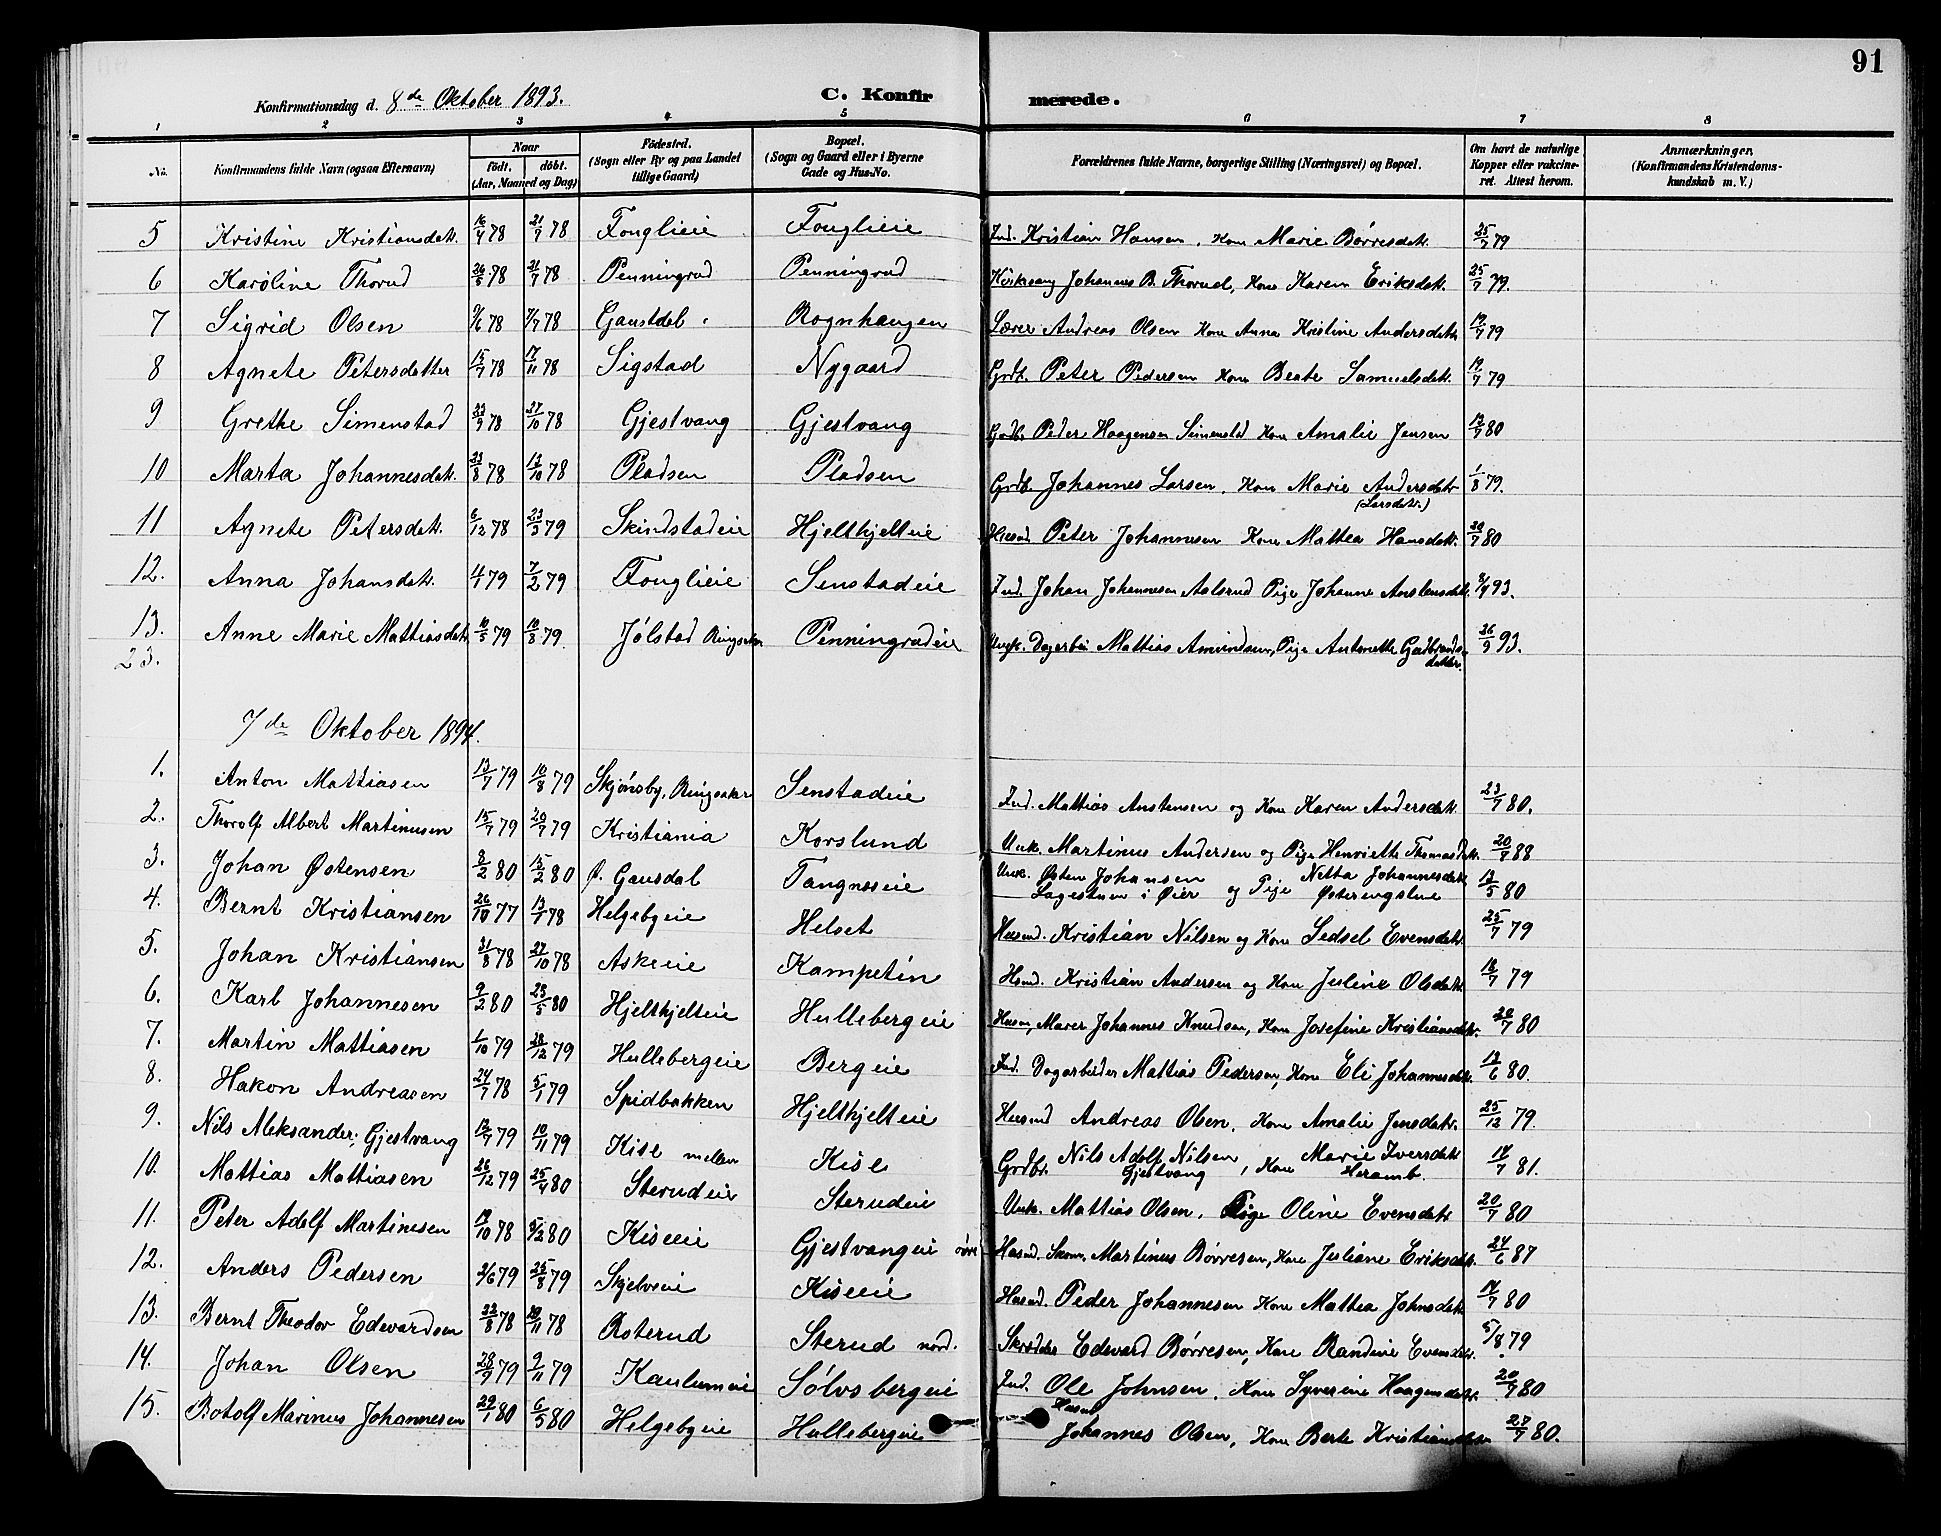 91
Konfirmationsdag d. 8de Oktober 1893.
C. Konfirmerede.
1 2 3 4 5 6 7 8
No. Konfirmandens fulde Navn (ogsaa Efternavn) Naar født. døbt. (Aar, Maaned og Dag) Fødested. (Sogn eller By og paa Landet tillige Gaard) Bopæl. (Sogn og Gaard eller i Byerne Gade og Hus-No. Forældrenes fulde Navne, borgerlige Stilling (Næringsvei) og Bopæl. Om havt de naturlige Kopper eller vakcineret. Attest herom. Anmærkninger. (Konfirmandens Kristendomskundskab m. V.)
5 Kristine Kristiansdatr. 16/4 78 21/7 78 Fonglieie Fonglieie Ind. Kristian Hansen, Kone Marie Børresdatr. 25/7 79
6 Karoline Thorud 26/5 78 21/7 78 Penningrud Penningrud Kirkesang Johannes B. Thorud, Kone Karen Eriksdatr. 25/7 79.
7 Sigrid Olsen 9/6 78 7/7 78 Gausdal Rognhaugen Lærer Andreas Olsen Kone Anna Kristine Andersdatr 19/7 79
8 Agnete Petersdatter 15/7 78 17/11 78 Sigstad Nygaard Grdb. Peter Pedersen Kone Beate Samuelsdatr. 19/7 79
9 Grethe Simenstad 23/9 78 27/10 78 Gjestvang Gjestvang Grdb. Peder Haagensen Simenstad Kone Amalie Jensen 12/7 80
10 Marta Johannesdatr. 23/8 78 13/10 78 Pladsen Pladsen Grdb. Johannes Larsen, Kone Marie Andersdatr (Larsdatr.) 1/8 79.
11 Agnete Petersdatr. 6/12 78 23/3 79 Skindstadeie Hjelthjelteie Husmd Peter Johannesen Kone Mattea Hansdatr. 20/7 80
12. Anna Johansdatr. 11/1 79 7/2 79 Fonglieie Senstadeie Ind. Johan Johannesen Aalsrud Pige Johanne Anstensdatr. 8/4 93.
13. Anne Marie Mattiasdatr. 10/5 79 10/8 79. Jølstad Ringsaker Penningrudeie Ungk. Dagarbei. Mattias Amundsen, Pige Antonette Gudbrandsdatter. 26/9 93.
23.
7de Oktober 1894.
1. Anton Mattiasen 13/7 79 10/8 79 Skjønsby, Ringsaker Senstadeie Ind. Mattias Anstensen og Kone Karen Andersdatr 23/7 80.
2. Thorolf Albert Martinusen 15/7 79 20/7 79 Kristiania Korslund Unk. Martinus Andersen og Pige Henriette Thomasdatr. 20/7 88
3. Johan Østensen 8/2 80 15/2 80 Ø. Gausdal Tangneseie Unk. Østen Johansen Lagestuen i Øier og Pige Netta Johannesdatr Østerengsline 13/5 80
4. Bernt Kristiansen 26/10 77 13/1 78 Helgebyeie Helset Husmd. Kristian Nilsen og Kone Sedsel Evensdatr. 25/7 79
5. Johan Kristiansen 31/8 78 27/10 78 Askeeie Kampetin Husmd. Kristian Andersen og Kone Juline Olsdatr 18/7 79
6. Karl Johannesen 9/2 80 23/5 80 Hjelthjelteie Hullebergeie Husm, Murer Johannes Knudsen, Kone Josefine Kristiansdatr. 20/7 80
7. Martin Mattiasen 1/10 79 28/12 79 Hullebergeie Bergeie Ind. Dagarbeider Mattias Pedersen, Kone Eli Johannesdatr. 13/6 80.
8. Hakon Andreasen 24/7 78 5/1 79 Spidbakken Hjelthjelteie Husmd Andreas Olsen, Kone Amalie Jensdatr. 25/12 79.
9. Nils Aleksander Gjestvang 12/7 79 10/11 79 Kise mellem Kise Grdbr. Nils Adolf Nilsen Gjestvang, Kone Marie Iversdatr Heramb. 14/7 81.
10. Mattias Mattiasen 26/12 79 25/4 80 Sterudeie Sterudeie Unk. Mattias Olsen, Pige Oline Evensdatr 20/7 80
11. Peter Adolf Martinusen 19/10 78 5/2 80 Kiseeie Gjestvangeie øvre Husmd. Skom. Martinus Børresen, Kone Juliane Eriksdatr. 24/6 87
12. Anders Pedersen 2/6 79 25/8 79 Skjelveeie Kiseeie Husmd. Peder Johannesen Kone Mattea Johnsdatr 14/7 80
13. Bernt Theodor Edvardsen 22/8 78 10/11 78 Roterud Sterud nord. Skrædder Edevard Børresen, Kone Randine Evensdatr. 5/8 79
14. Johan Olsen 28/9 79 9/11 79 Kaulumeie Sølvsbergeie Ind. Ole Johnsen, Kone Syverine Haagensdatr. 20/7 80
15. Botolf Marinus Johannesen 29/1 80 6/5 80 Helgebyeie Hullebergeie Husmd Johannes Olsen, Kone Berte Kristiansdatr 27/7 80.